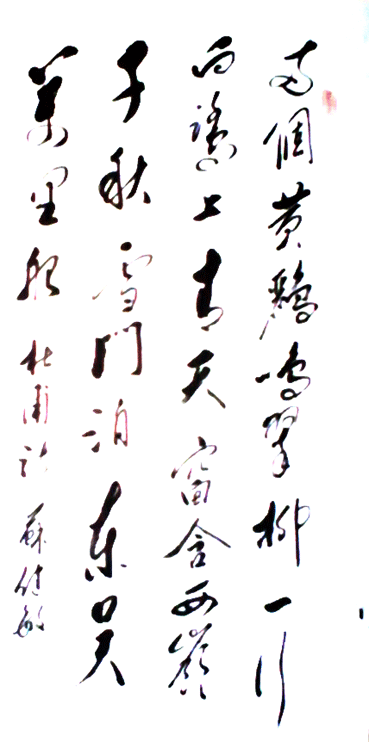 两個黄鸝鳴翠柳一行
白鷺上青天窗含西嶺
千秋雪門泊東吴
萬里船杜甫詩蘇健敏